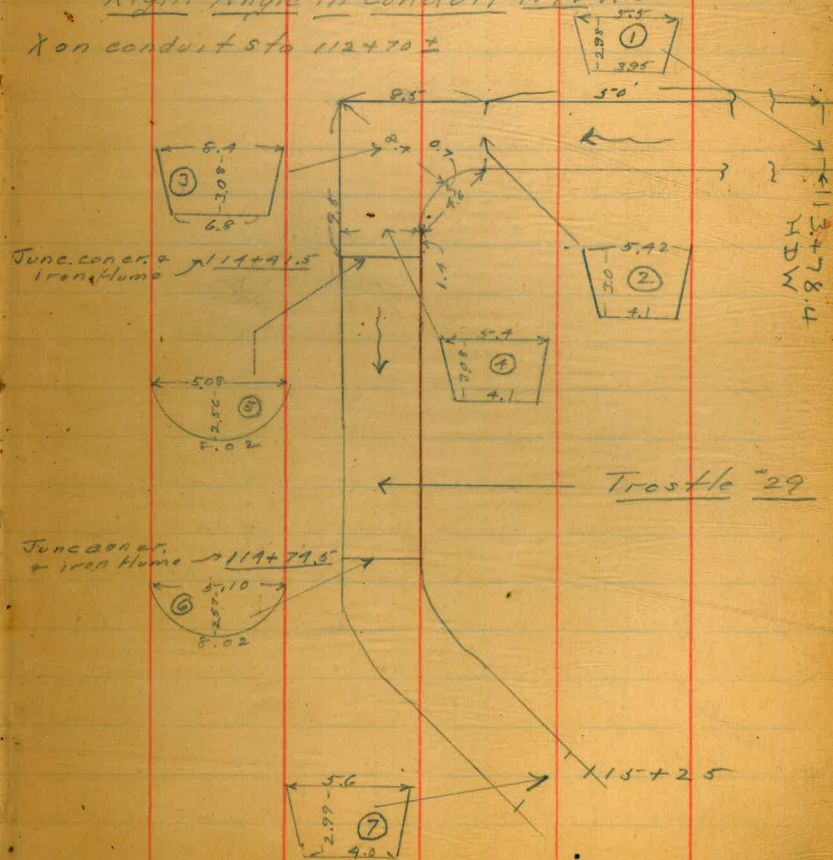 Right Angle in Conduit
X on conduit sta 112+70 ±
5.5
2.98
①
3.95
8.5
50'
8.4
③
3.08
6.8
9.5
5.6
1.4
113+78.4
HDW
5.42
3.0
②
4.1
Junc. concr. &
iron flume 114+41.5
5.4
3.08
④
4.1
5.08
2.56
⑤
8.02
Trestle #29
Junc concr.
& iron flume 114+74.5
5.10
⑥
2.57
8.02
115+25
5.6
2.99
⑦
4.0